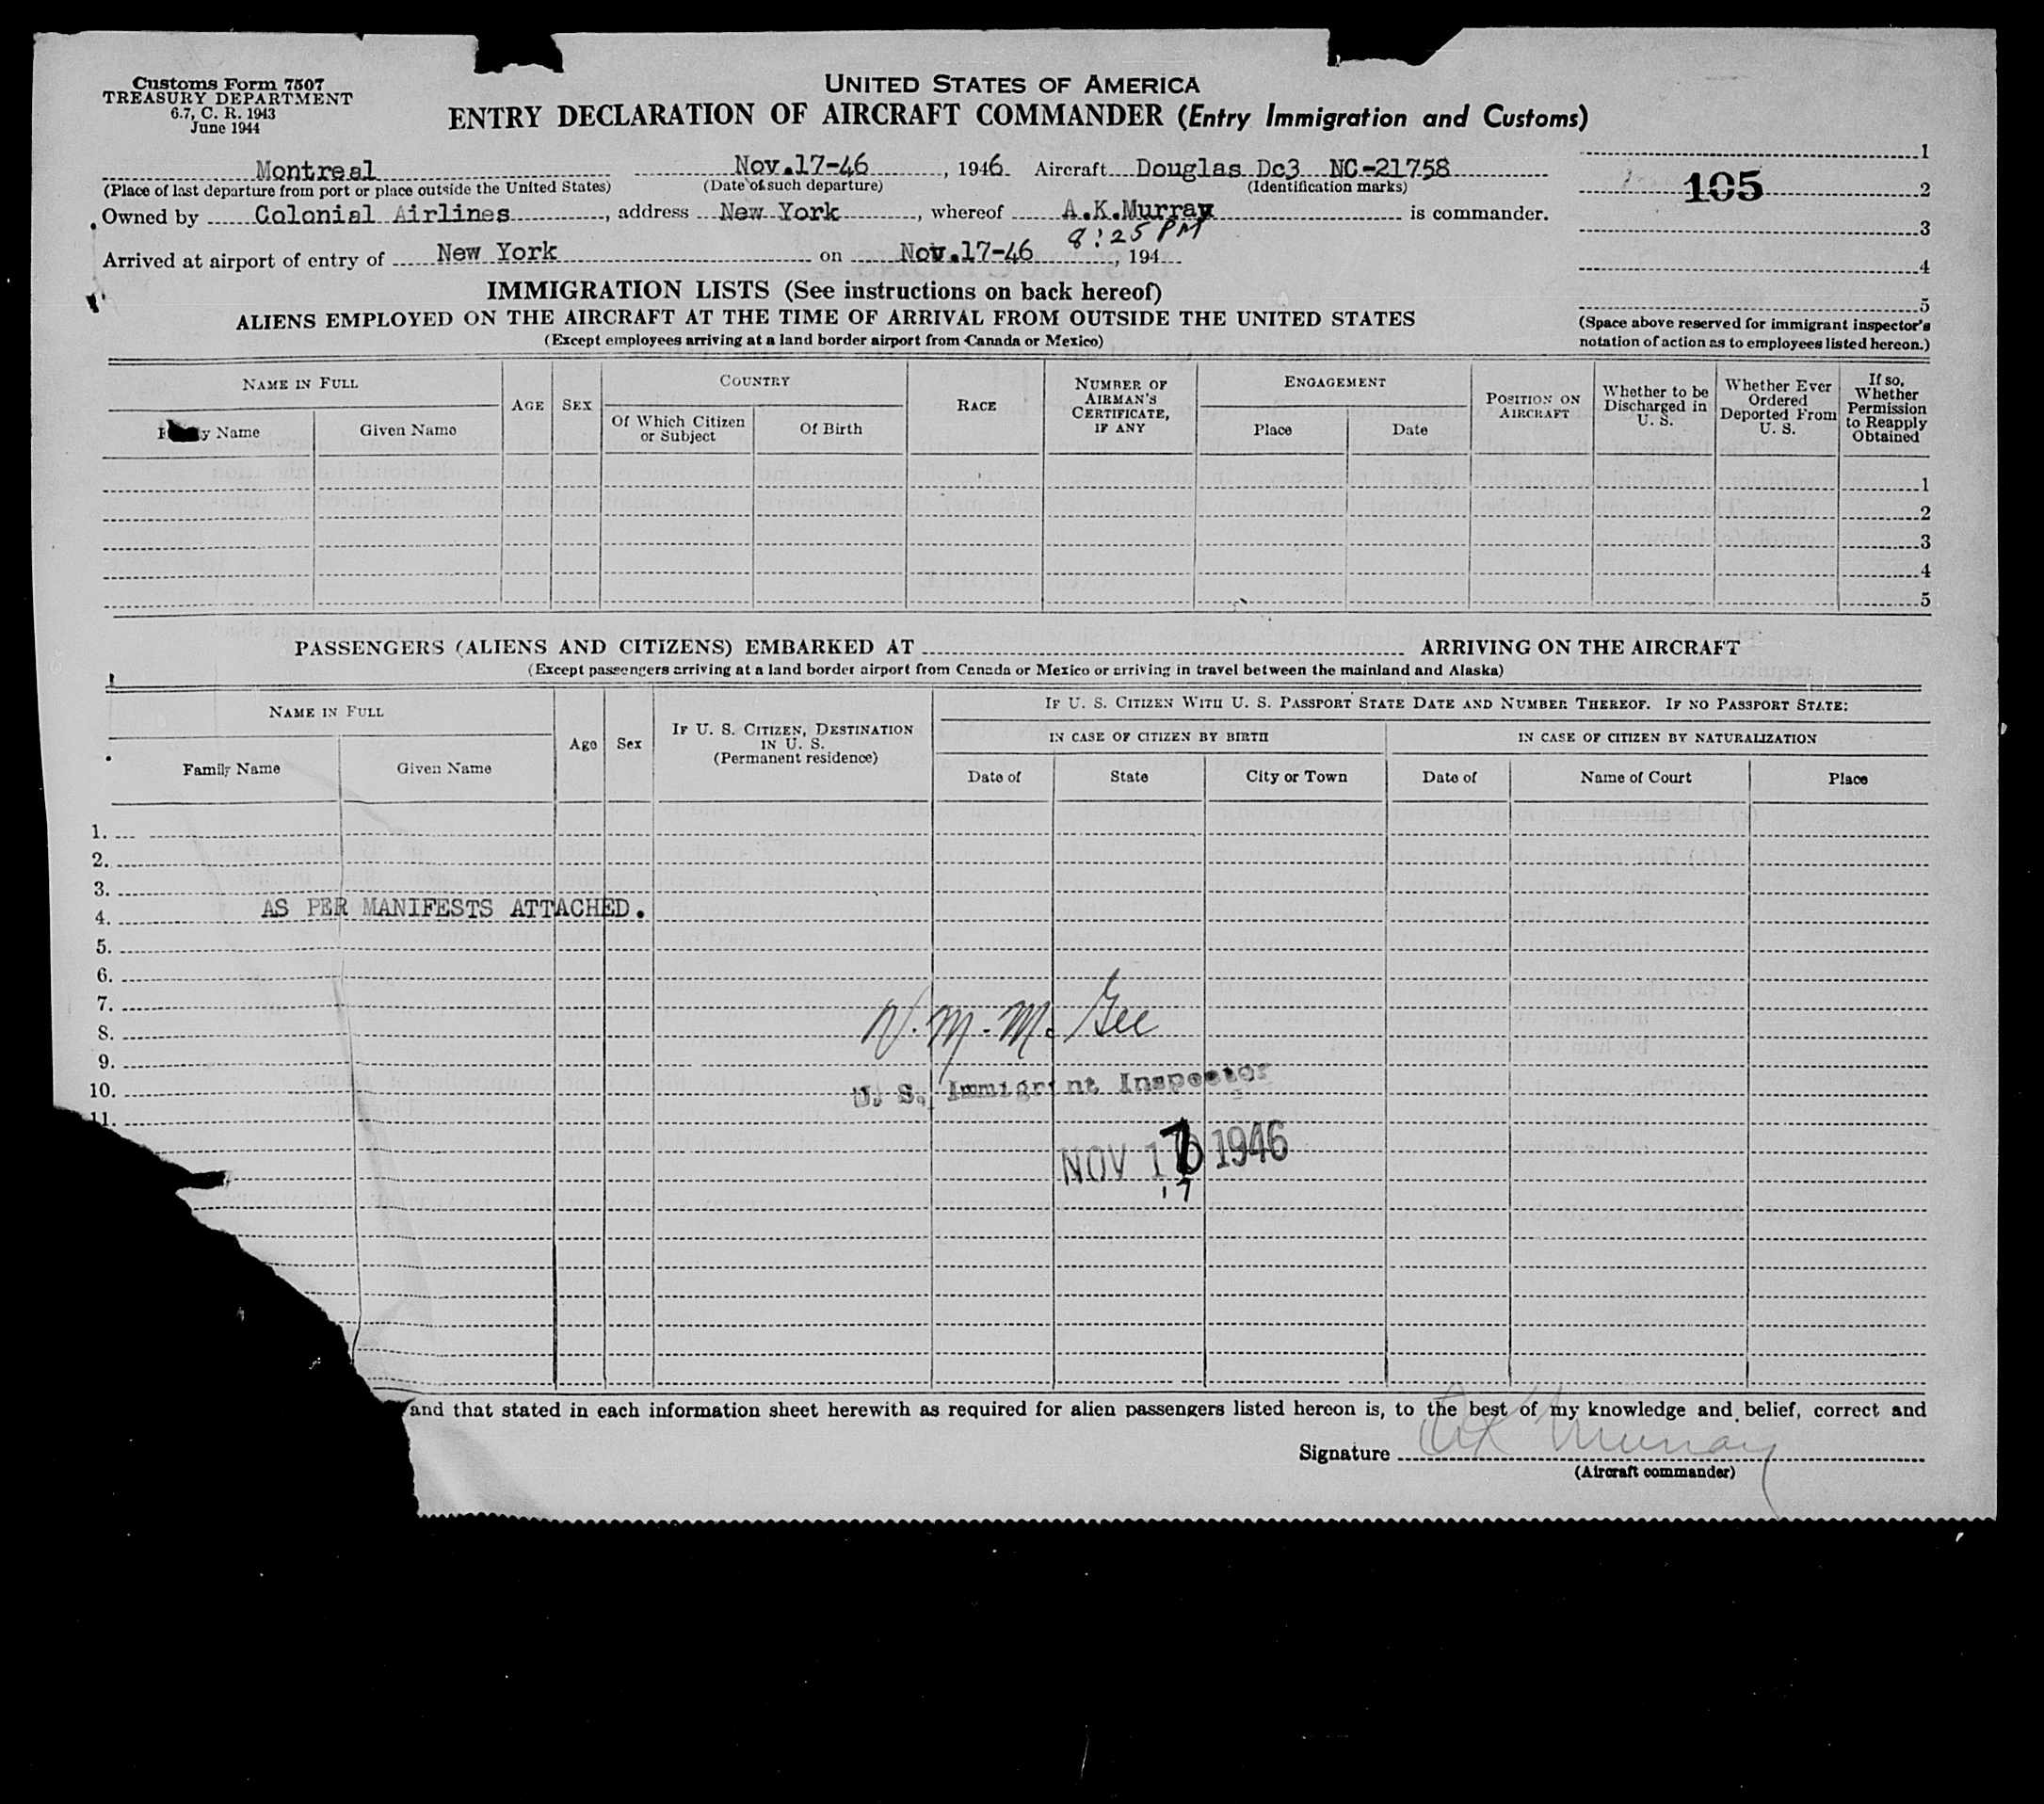 Customs Form 7507
TREASURY DEPARTMENT
6.7, C. R. 1943
June 1944
UNITED STATES OF AMERICA
ENTRY DECLARATION OF AIRCRAFT COMMANDER (Entry Immigration and Customs)
Montreal Nov.17-46, 1946 Aircraft Douglas Dc3 NC-21758
(Place of last departure from port or place outside the United States) (Date of such departure) (Identification marks)
Owned by Colonial Airlines, address New York, whereof A.K.Murray is commander.
8:25 PM
Arrived at airport of entry of New York on Nov.17-46, 194
1
105 2
3
4
5
(Space above reserved for immigrant inspector's
notation of action as to employees listed hereon.)
IMMIGRATION LISTS (See instructions on back hereof)
ALIENS EMPLOYED ON THE AIRCRAFT AT THE TIME OF ARRIVAL FROM OUTSIDE THE UNITED STATES
(Except employees arriving at a land border airport from Canada or Mexico)
NAME IN FULL
Name
Given Name
AGE
SEX
COUNTRY
Of Which Citizen
or Subject
Of Birth
RACE
NUMBER OF
AIRMAN'S
CERTIFICATE,
IF ANY
ENGAGEMENT
Place
Date
POSITION ON
AIRCRAFT
Whether to be
Discharged in
U. S.
Whether Ever
Ordered
Deported From
U. S.
If so,
Whether
Permission
to Reapply
Obtained
1
2
3
4
5
PASSENGERS (ALIENS AND CITIZENS) EMBARKED AT ARRIVING ON THE AIRCRAFT
(Except passengers arriving at a land border airport from Canada or Mexico or arriving in travel between the mainland and Alaska)
NAME IN FULL
Family Name
Given Name
Age
Sex
IF U. S. CITIZEN, DESTINATION
IN U. S.
(Permanent residence)
IF U. S. CITIZEN WITH U. S. PASSPORT STATE DATE AND NUMBER THEREOF. IF NO PASSPORT STATE:
IN CASE OF CITIZEN BY BIRTH
IN CASE OF CITIZEN BY NATURALIZATION
Date of
State
City or Town
Date of
Name of Court
Place
1.
2.
3.
4. AS PER MANIFESTS ATTACHED.
5.
6.
7.
8.
9.
10.
11.
U. S. Immigrant Inspector
NOV 17 1946
17
and that stated in each information sheet herewith as required for alien passengers listed hereon is, to the best of my knowledge and belief, correct and
Signature A K Murray
(Aircraft commander)